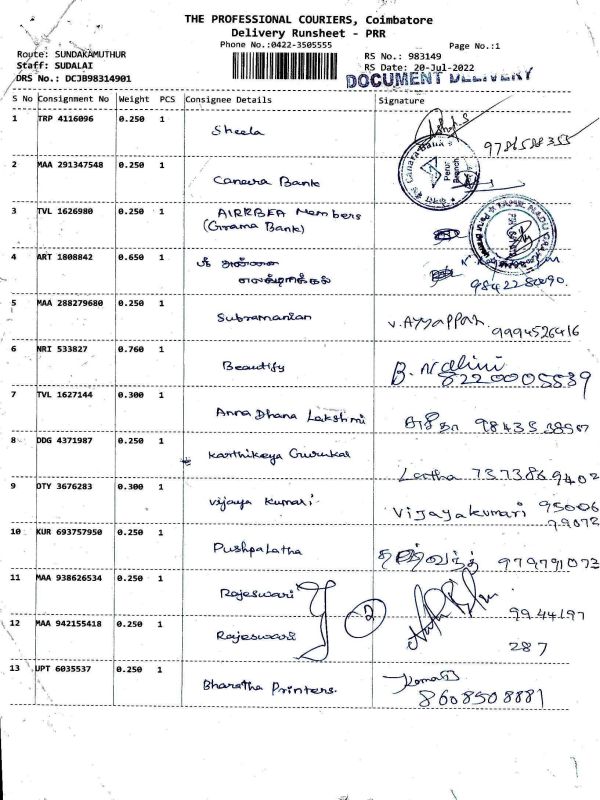 THE PROFESSIONAL COURIERS, Coimbatore
Delivery Runsheet - PRR
Phone No.:0422-3505555
Page No.:1
Route: SUNDAKAMUTHUR
RS No.: 983149
Staff: SUDALAI
RS Date: 20-Jul-2022
DRS No.: DCJB98314901
DOCUMENT DELIVERY
S No Consignment No Weight PCS Consignee Details Signature
1 TRP 4116096 0.250 1 Sheela
2 MAA 291347548 0.250 1 Canara Bank
3 TVL 1626980 0.250 1 AIRRBEA Members
(Grama Bank)
4 ART 1808842 0.650 1 ஸ்ரீ அன்னை
எலக்ட்ரிக்கல்
5 MAA 288279680 0.250 1 Subramanian V. Ayyappan 9994526416
6 NRI 533827 0.760 1 Beautify B. Nalini
8220005539
7 TVL 1627144 0.300 1 Anna Dhana Lakshmi
8 DDG 4371987 0.250 1 Karthikeya Gurukal 7373869402
9 OTY 3676283 0.300 1 Vijaya Kumari Vijayakumari 95006
99072
10 KUR 693757950 0.250 1 Pushpalatha 979791073
11 MAA 938626534 0.250 1 Rajeswari 2 9944197
12 MAA 942155418 0.250 1 Rajeswari 287
13 UPT 6035537 0.250 1 Bharatha Printers.
8608508881